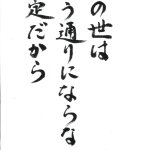 の世は
う通りにならな
定だから